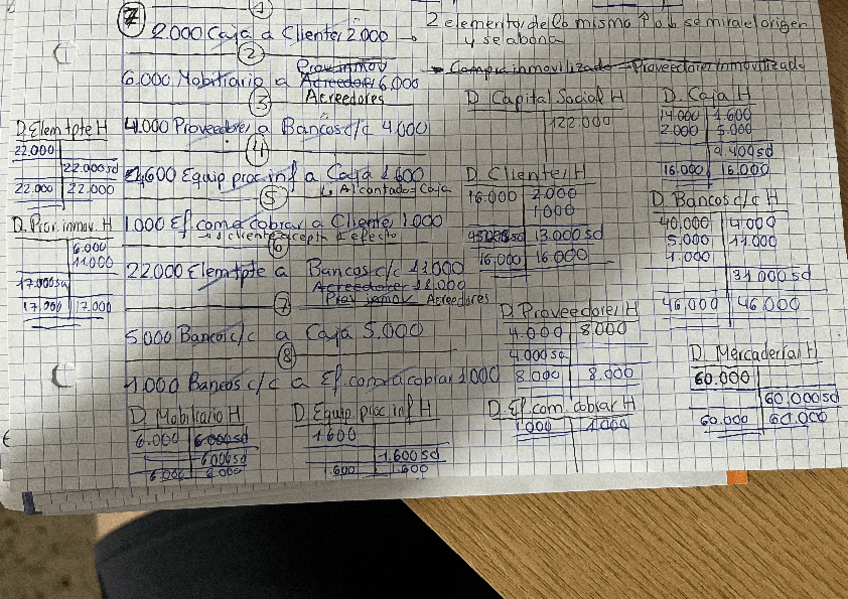 7
1
2.000 Caja a Clientes 2.000
2
Prov inmov
6.000 Mobiliario a Acreedores 6.000
Acreedores
3
4.000 Proveedores a Bancos c/c 4.000
4
1.600 Equip proc inf a Caja 1.600
Al contado = Caja
5
1.000 Ef. com a cobrar a Clientes 1.000
6
22.000 Elem tpte a Bancos c/c 11.000
Acreedores 11.000
Prov inmov Acreedores
7
5.000 Bancos c/c a Caja 5.000
8
1.000 Bancos c/c a Ef. com a cobrar 1.000
2 elementos de lo mismo se mira el origen
y se abona
Compra inmovilizado = Proveedores Inmovilizado
D. Elem tpte H
22.000
22.000 sd
22.000 22.000
D. Prov. inmov. H
6.000
11.000
17.000 sa
17.000 17.000
D. Capital Social H
122.000
D. Caja H
14.000 1.600
2.000 5.000
9.400 sd
16.000 16.000
D. Clientes H
16.000 2.000
1.000
13.000 sd
16.000 16.000
D. Bancos c/c H
40.000 4.000
5.000 11.000
1.000
31.000 sd
46.000 46.000
D. Proveedores H
4.000 8.000
4.000 sa
8.000 8.000
D. Mercaderías H
60.000
60.000 sd
60.000 60.000
D. Mobiliario H
6.000 6.000 sd
6.000 sd
6.000 6.000
D. Equip. proc. inf H
1.600
1.600 sd
1.600 1.600
D. Ef. com. cobrar H
1.000 1.000